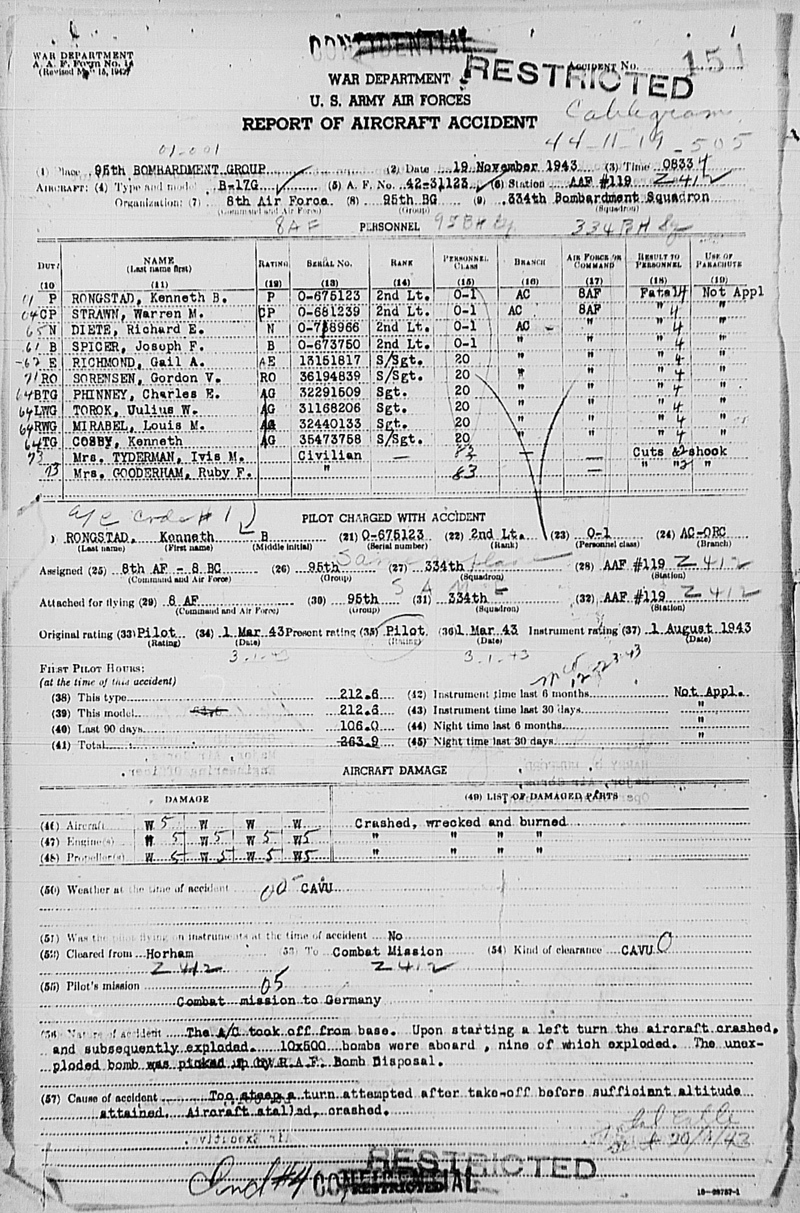 CONFIDENTIAL
WAR DEPARTMENT
A. A. F. Form No. 14
(Revised May 15, 1942)
ACCIDENT No. 151
RESTRICTED
WAR DEPARTMENT
U. S. ARMY AIR FORCES
REPORT OF AIRCRAFT ACCIDENT
Cablegram
44-11-19-505
01-001
(1) Place 95th BOMBARDMENT GROUP (2) Date 19 November 1943 (3) Time 0833
AIRCRAFT: (4) Type and model B-17G (5) A. F. No. 42-31123 (6) Station AAF #119 Z412
Organization: (7) 8th Air Force (8) 95th BG (9) 334th Bombardment Squadron
(Command and Air Force) (Group) (Squadron)
8AF 95 BH Gp 334 BH Sq
PERSONNEL
DUTY NAME (Last name first) RATING SERIAL NO. RANK PERSONNEL CLASS BRANCH AIR FORCE OR COMMAND RESULT TO PERSONNEL USE OF PARACHUTE
(10) (11) (12) (13) (14) (15) (16) (17) (18) (19)
01 P RONGSTAD, Kenneth B. P O-675123 2nd Lt. O-1 AC 8AF Fatal 4 Not Appl
04 CP STRAWN, Warren M. CP O-681239 2nd Lt. O-1 AC 8AF " 4 "
65 N DIETE, Richard E. N 2nd Lt. O-1 AC " " 4 "
61 B SPICER, Joseph F. B O-673750 2nd Lt. O-1 " " " 4 "
62 E RICHMOND, Gail A. AE 13151817 S/Sgt. 20 " " " 4 "
71 RO SORENSEN, Gordon V. RO 36194839 S/Sgt. 20 " " " 4 "
64 BTG PHINNEY, Charles E. AG 32291509 Sgt. 20 " " " 4 "
64 LWG TOROK, Uulius W. AG 31168206 Sgt. 20 " " " 4 "
64 RWG MIRABEL, Louis M. AG 32440133 Sgt. 20 " " " 4 "
64 TG COSBY, Kenneth AG 35473758 S/Sgt. 20 " " " 4 "
73 Mrs. TYDERMAN, Ivis M. Civilian — 83 — — Cuts & shock
73 Mrs. GOODERHAM, Ruby F. " 83 — " " "
a/c code # 1
PILOT CHARGED WITH ACCIDENT
) RONGSTAD, Kenneth B (21) O-675123 (22) 2nd Lt. (23) O-1 (24) AC-ORC
(Last name) (First name) (Middle initial) (Serial number) (Rank) (Personnel class) (Branch)
Assigned (25) 8th AF - 8 BC (26) 95th (27) 334th (28) AAF #119 Z412
(Command and Air Force) (Group) (Squadron) (Station)
Attached for flying (29) 8 AF (30) 95th (31) 334th (32) AAF #119 Z412
(Command and Air Force) (Group) (Squadron) (Station)
Original rating (33) Pilot (34) 1 Mar 43 Present rating (35) Pilot (36) 1 Mar 43 Instrument rating (37) 1 August 1943
(Rating) (Date) (Rating) (Date) (Date)
3-1-43 3-1-43
FIRST PILOT HOURS:
(at the time of this accident)
(38) This type 212.6 (42) Instrument time last 6 months Not Appl.
(39) This model 212.6 (43) Instrument time last 30 days "
(40) Last 90 days 106.0 (44) Night time last 6 months "
(41) Total 263.9 (45) Night time last 30 days "
AIRCRAFT DAMAGE
DAMAGE (49) LIST OF DAMAGED PARTS
(46) Aircraft W 5 W W W Crashed, wrecked and burned
(47) Engine(s) W 5 W 5 W 5 W5 " " " "
(48) Propeller(s) W 5 W 5 W 5 W5 " " " "
(50) Weather at the time of accident CAVU
(51) Was the pilot flying on instruments at the time of accident No
(52) Cleared from Horham (53) To Combat Mission (54) Kind of clearance CAVU 0
Z412 Z412
(55) Pilot's mission 05
Combat mission to Germany
(56) Nature of accident The A/C took off from base. Upon starting a left turn the aircraft crashed,
and subsequently exploded. 10x500 bombs were aboard , nine of which exploded. The unex-
ploded bomb was picked up by R.A.F. Bomb Disposal.
(57) Cause of accident Too steep a turn attempted after take-off before sufficient altitude
attained. Aircraft stalled, crashed.
RESTRICTED
Ind #4 CONFIDENTIAL
RESTRICTED